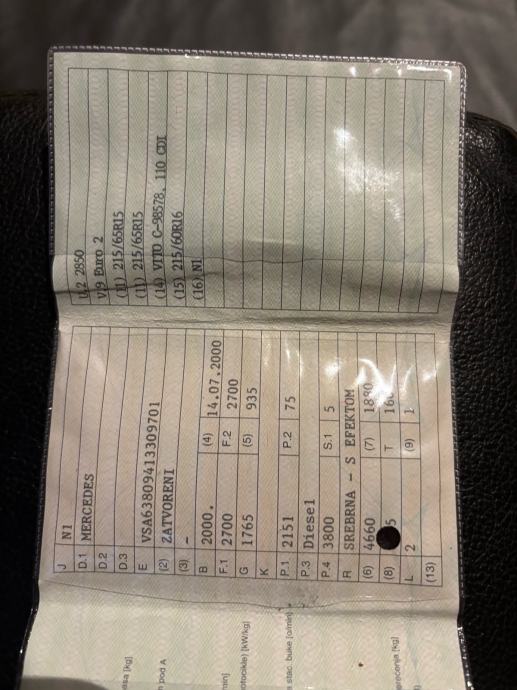 J N1
D.1 MERCEDES
D.2
D.3
E VSA63809413309701
(2) ZATVORENI
(3) -
B 2000. (4) 14.07.2000
F.1 2700 F.2 2700
G 1765 (5) 935
K
P.1 2151 P.2 75
P.3 Diesel
P.4 3800 S.1 5
R SREBRNA - S EFEKTOM
(6) 4660 (7)
(8) T
L 2 (9)
(13)
U.2 2850
V.9 Euro 2
(11) 215/65R15
(11) 215/65R15
(14) VITO C-98578, 110 CDI
(15) 215/60R16
(16) N1
[kg]
pod A
[kW/kg]
stac. buke [o/min]
[kg]